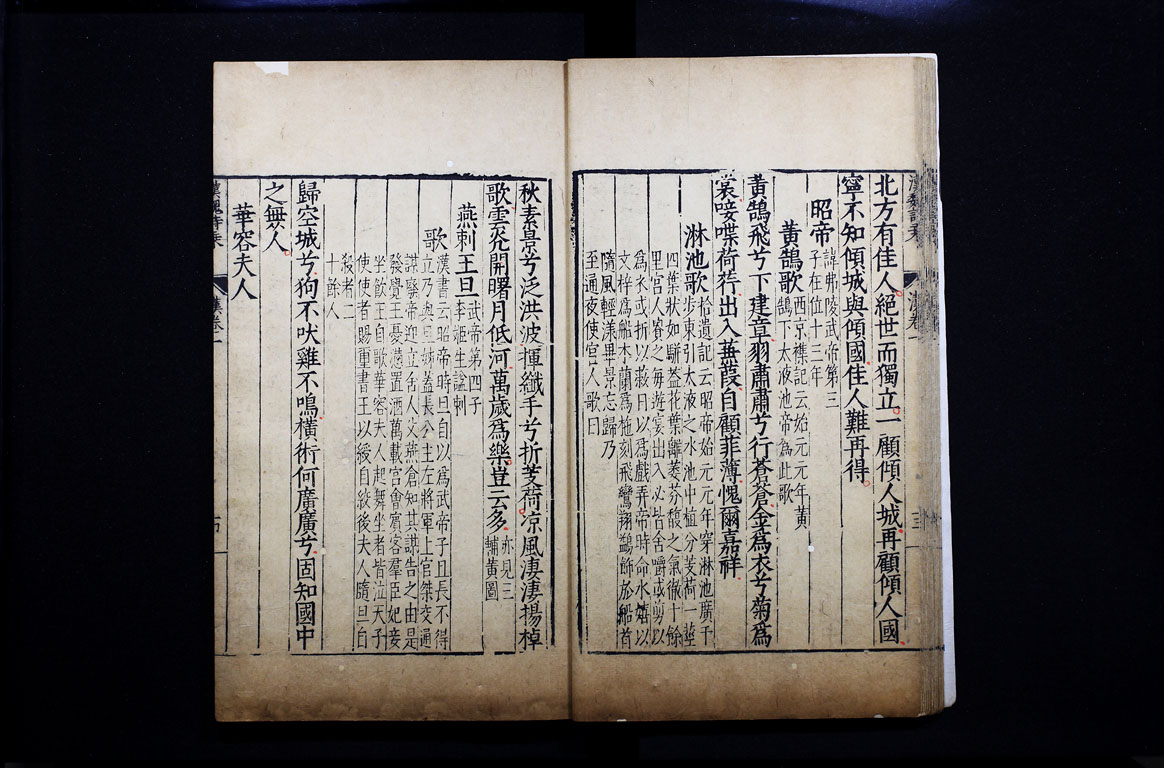 漢卷一
三
北方有佳人絕世而獨立一顧傾人城再顧傾人國
寧不知傾城與傾國佳人難再得
昭帝 諱弗陵武帝第三
子在位十三年
黃鵠歌 西京襍記云始元元年黃
鵠下太液池帝為此歌
黃鵠飛兮下建章羽肅肅兮行蒼蒼金為衣兮菊為
裳唼喋荷荇出入蒹葭自顧菲薄愧爾嘉祥
淋池歌 拾遺記云昭帝始元元年穿淋池廣千
步東引太液之水池中植分芰荷一莖
四葉狀如駢蓋花葉雜萎芬馥之氣徹十餘
里宮人寶之每遊宴出入必皆含嚼或剪以
為衣或折以蔽日以為戲弄帝時命水嬉以
文梓為船木蘭為柂刻飛鸞翔鷁飾於船首
隨風輕漾畢景忘歸乃
至通夜使宮人歌曰
秋素景兮泛洪波揮纖手兮折芰荷凉風淒淒揚棹
歌雲光開曙月低河萬歲為樂豈云多 亦見三
輔黃圖
燕刺王旦 武帝第四子
李姬生謚刺
歌 漢書云昭帝時旦自以為武帝子且長不得
立乃與旦姊蓋長公主左將軍上官桀交通
謀廢帝迎立舍人父燕倉知其謀告之由是
發覺王憂懣置酒萬載宮會賓客羣臣妃妾
坐飲王自歌華容夫人起舞坐者皆泣天子
使使者賜璽書王以綬自絞後夫人隨旦自
殺者二
十餘人
歸空城兮狗不吠雞不鳴橫術何廣廣兮固知國中
之無人
華容夫人
漢卷一